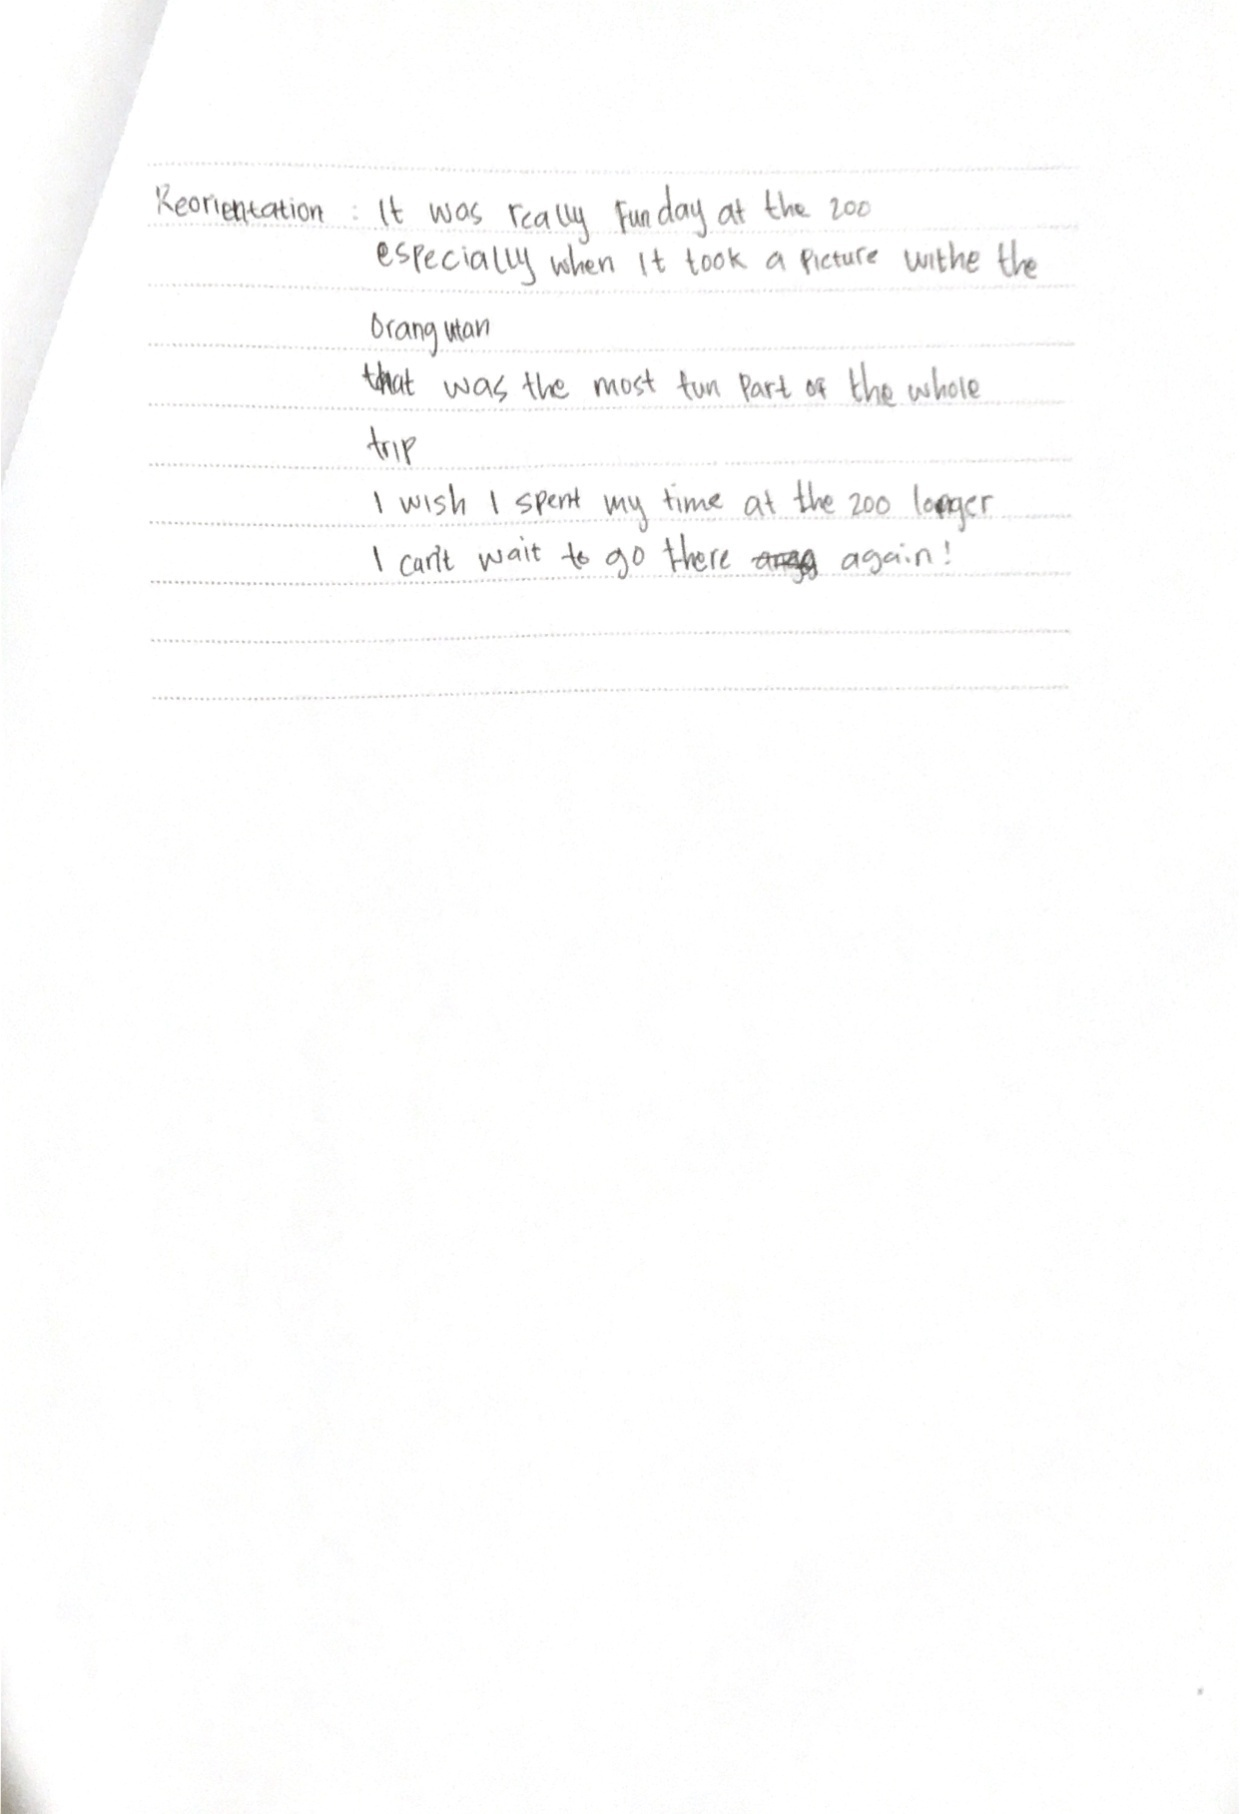 Reorientation : It was really Fun day at the zoo
especially when It took a Picture withe the
Orang utan
that was the most fun Part of the whole
trip
I wish I spent my time at the zoo longer
I can't wait to go there again!